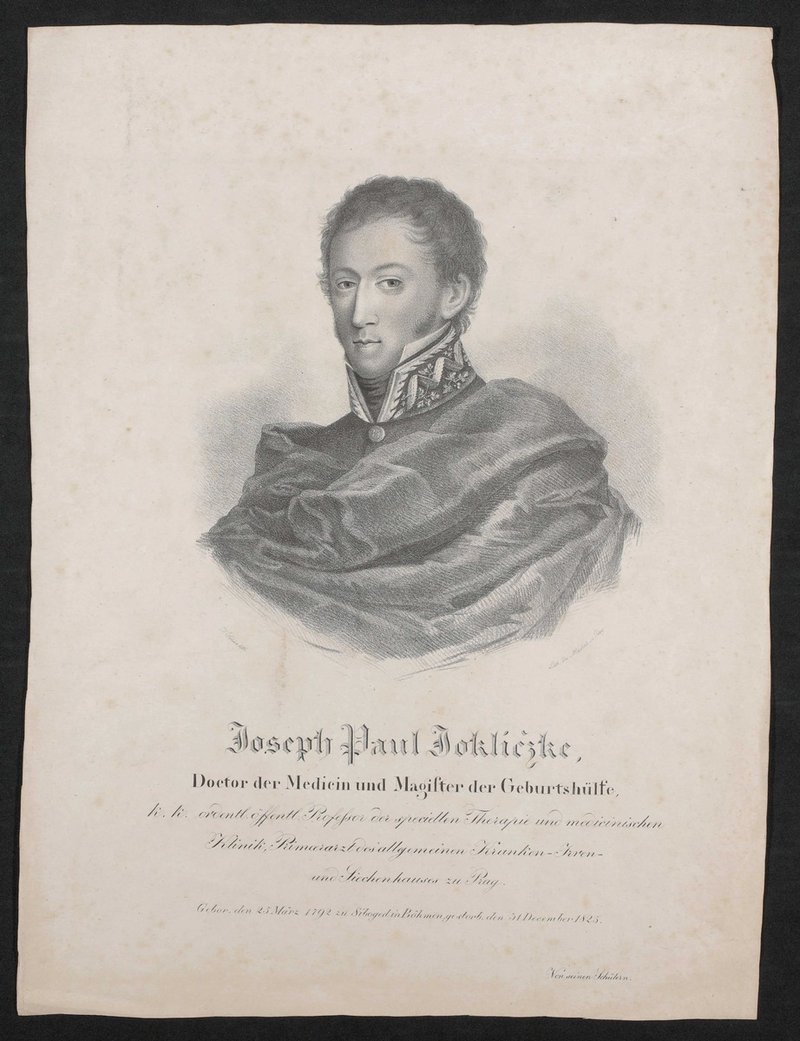 Joseph Paul Jokliczke,
Doctor der Medicin und Magiſter der Geburtshülfe,
k. k. ordentl. öffentl. Profeſsor der speciellen Therapie und medicinischen
Klinik, Primararzt des allgemeinen Kranken-Irren-
und Siechenhauses zu Prag.
Gebor. den 25 März 1792 zu in Böhmen, gestorb. den 31 December 1825.
Von seinen Schülern.